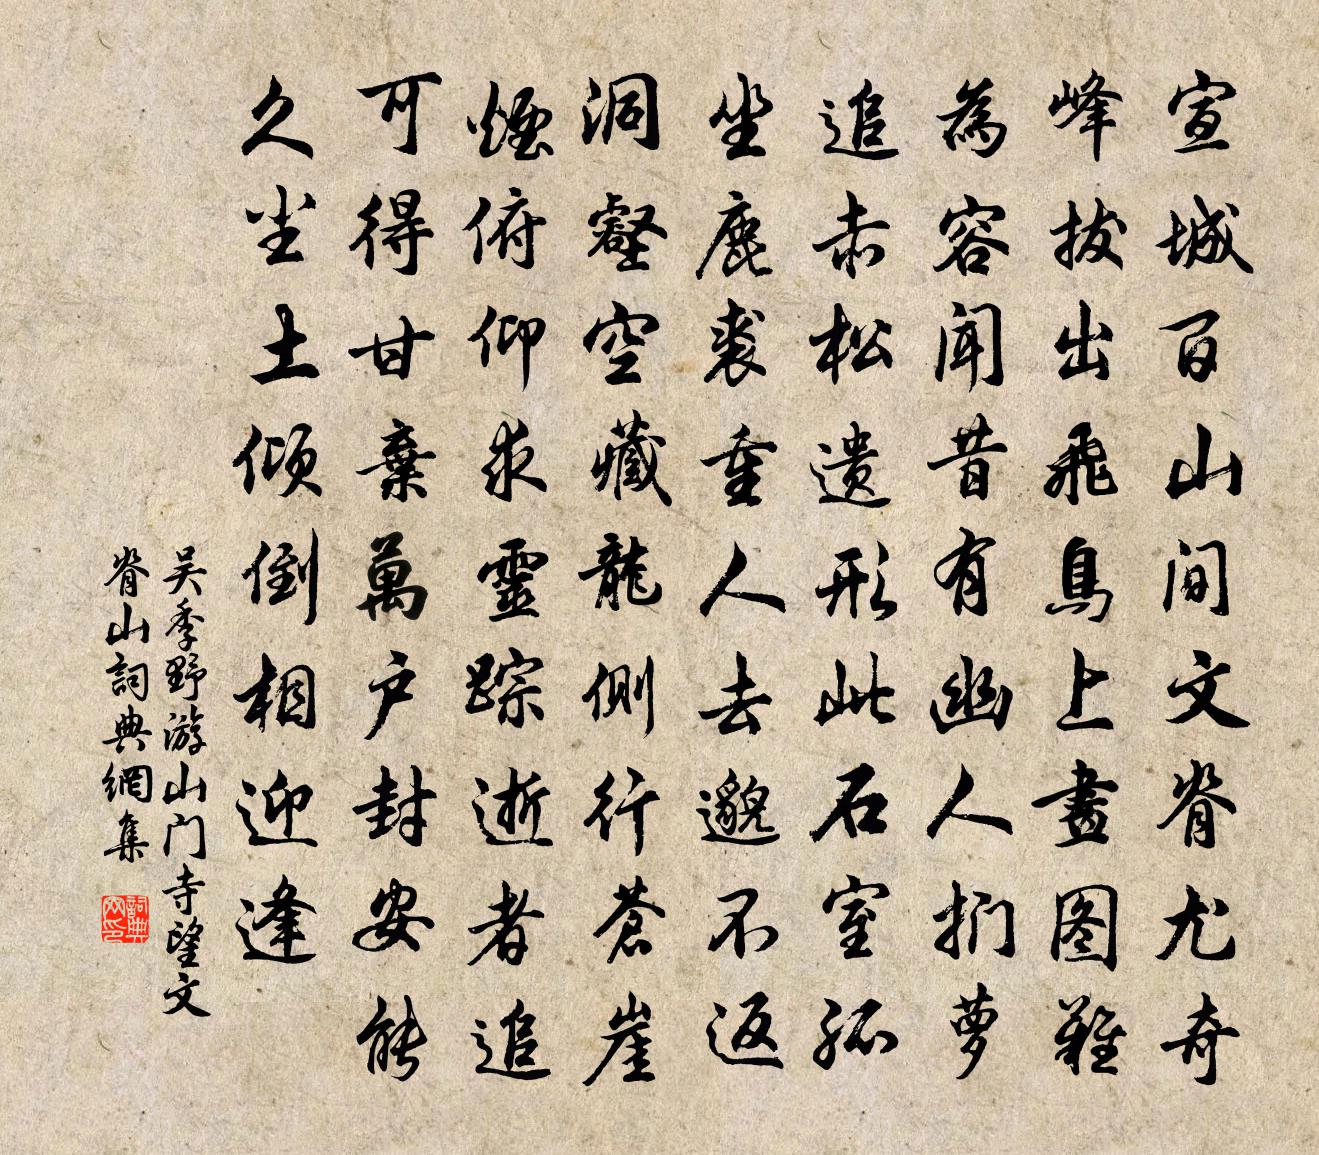 宣城百山间文脊尤奇
峰拔出飛鳥上畫图難
為容闻昔有幽人捫萝
追赤松遗形此石室孤
坐鹿裘重人去邈不返
洞壑空藏龍側行苍崖
煙俯仰求靈踪逝者追
可得甘棄萬户封安能
久坐土倾倒相迎逢
吴季野游山门寺望文
脊山詞典網集
詞典网印